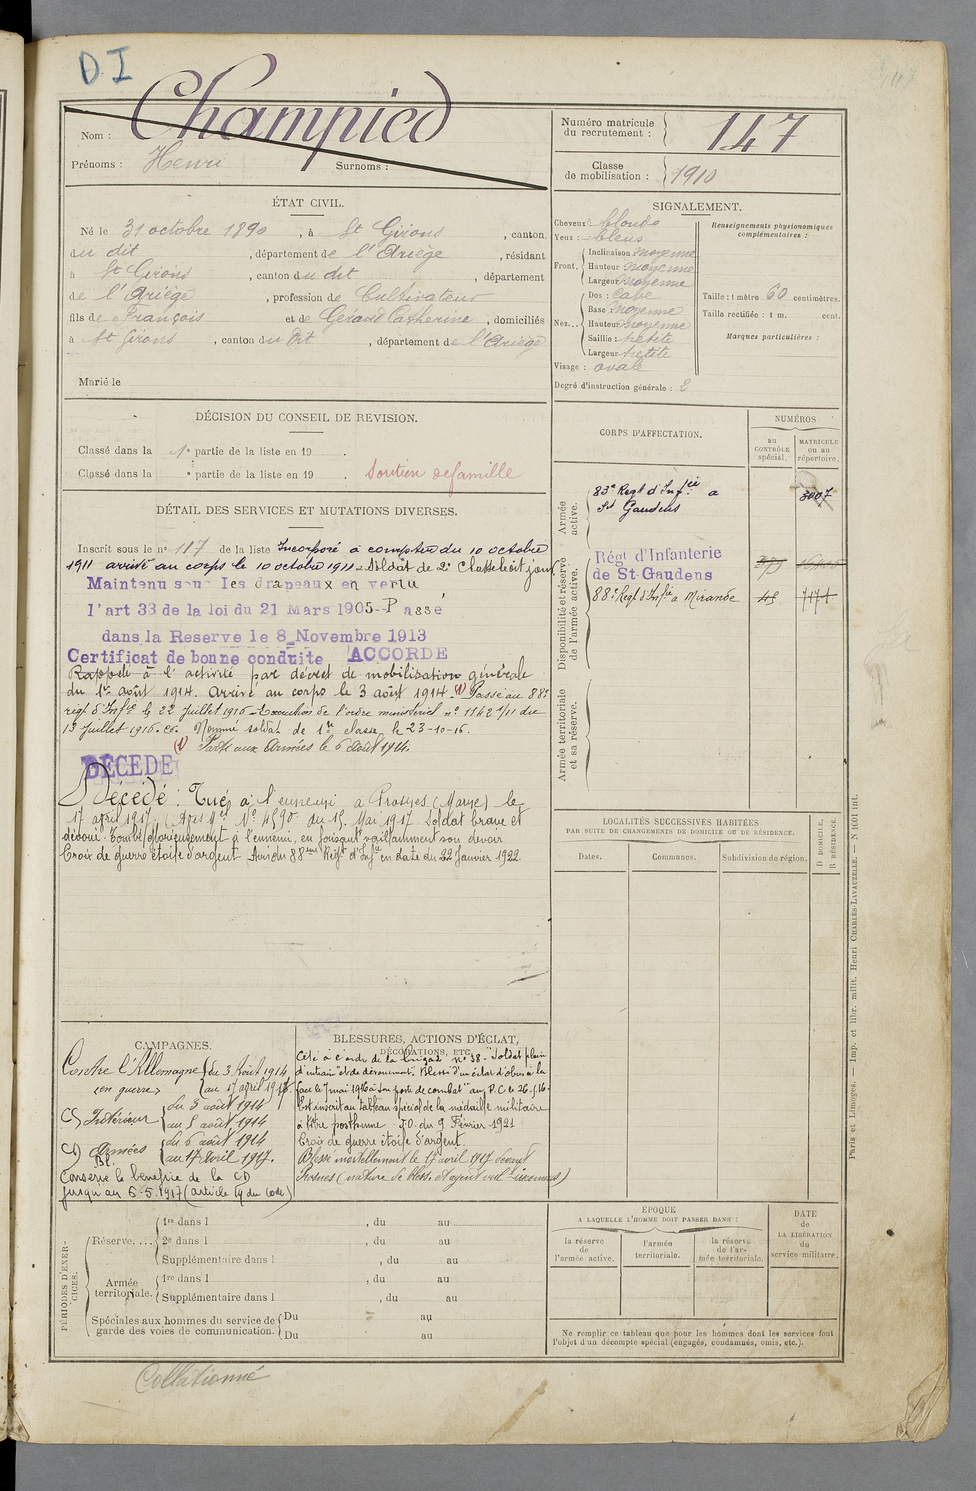 D I
Nom : Champied
Prénoms : Henri Surnoms :
Numéro matricule du recrutement : 147
Classe de mobilisation : 1910
ÉTAT CIVIL.
Né le 31 octobre 1890, à St Girons, canton
du dit, département de l'Ariège, résidant
à St Girons, canton du dit, département
de l'Ariège, profession de Cultivateur
fils de François et de Gérard Catherine, domiciliés
à St Girons, canton du dit, département de l'Ariège
Marié le
SIGNALEMENT.
Cheveux blonds
Yeux : bleus
Front. Inclinaison moyenne
Hauteur moyenne
Largeur moyenne
Nez... Dos : cave
Base moyenne
Hauteur moyenne
Saillie : petite
Largeur petite
Visage : ovale
Degré d'instruction générale : 2
Renseignements physionomiques complémentaires :
Taille : 1 mètre 60 centimètres.
Taille rectifiée : 1 m. cent.
Marques particulières :
DÉCISION DU CONSEIL DE REVISION.
Classé dans la 1e partie de la liste en 19 .
Classé dans la partie de la liste en 19 . Soutien de famille
DÉTAIL DES SERVICES ET MUTATIONS DIVERSES.
Inscrit sous le no 117 de la liste Incorporé à compter du 10 octobre
1911 arrivé au corps le 10 octobre 1911 Soldat de 2e Classe le dit jour.
Maintenu sous les drapeaux en vertu
l'art 33 de la loi du 21 Mars 1905-Passé
dans la Reserve le 8 Novembre 1913
Certificat de bonne conduite ACCORDE
Rappelé à l'activité par décret de mobilisation générale
du 1er août 1914. Arrivé au corps le 3 août 1914. (1) Passé au 88e
régt d'Infie le 22 juillet 1916 Exécution de l'ordre ministériel no 1142 1/11 du
13 juillet 1916. Nommé soldat de 1re classe le 23-10-16.
(1) Parti aux Armées le 6 août 1914.
DÉCÉDÉ
Décédé : Tué à l'ennemi à Prosnes (Marne) le
17 avril 1917 (Avis Mel No 4590 du 15 Mai 1917 Soldat brave et
dévoué. Tombé glorieusement à l'ennemi, en faisant vaillamment son devoir
Croix de guerre étoile d'argent Avis du 88eme Régt d'Infie en date du 22 Janvier 1922.
CORPS D'AFFECTATION.
NUMÉROS
au CONTRÔLE spécial.
MATRICULE ou au répertoire.
Armée active.
83e Régt d'Infie à St Gaudens 3007
Disponibilité et réserve de l'armée active.
Régt d'Infanterie
de St-Gaudens
88e Régt d'Infie à Mirande
Armée territoriale et sa réserve.
LOCALITÉS SUCCESSIVES HABITÉES
PAR SUITE DE CHANGEMENTS DE DOMICILE OU DE RÉSIDENCE.
Dates. Communes. Subdivision de région.
D DOMICILE, R RÉSIDENCE.
CAMPAGNES.
Contre l'Allemagne du 3 Août 1914
(en guerre) au 17 avril 1917.
C) Intérieur du 3 août 1914
au 5 août 1914
C) Armées du 6 août 1914
au 17 Avril 1917.
Conserve le bénéfice de la CD
jusqu'au 6-5-1917 (article 19 du code)
BLESSURES, ACTIONS D'ÉCLAT,
DÉCORATIONS, ETC.
Cité à l'ordre de la brigade no 38 - "Soldat plein
d'entrain et de dévouement. Blessé d'un éclat d'obus à la
face le 7 mai 1916 à son poste de combat"
Est inscrit au tableau spécial de la médaille militaire
à titre posthume. JO. du 9 Février 1921
Croix de guerre étoile d'argent.
Blessé mortellement le 17 avril 1917 devant
Prosnes (nature de bless. et agent vul. inconnus)
PÉRIODES D'EXERCICES.
Réserve.... 1re dans l , du au
2e dans l , du au
Supplémentaire dans l , du au
Armée territoriale. 1re dans l , du au
Supplémentaire dans l , du au
Spéciales aux hommes du service de garde des voies de communication. Du au
Du au
ÉPOQUE
A LAQUELLE L'HOMME DOIT PASSER DANS :
la réserve de l'armée active.
l'armée territoriale.
la réserve de l'armée territoriale.
DATE de LA LIBÉRATION du service militaire.
Ne remplir ce tableau que pour les hommes dont les services font
l'objet d'un décompte spécial (engagés, condamnés, omis, etc.).
Paris et Limoges. — Imp. et libr. milit. Henri CHARLES-LAVAUZELLE. — N 1601 int.
Collationné